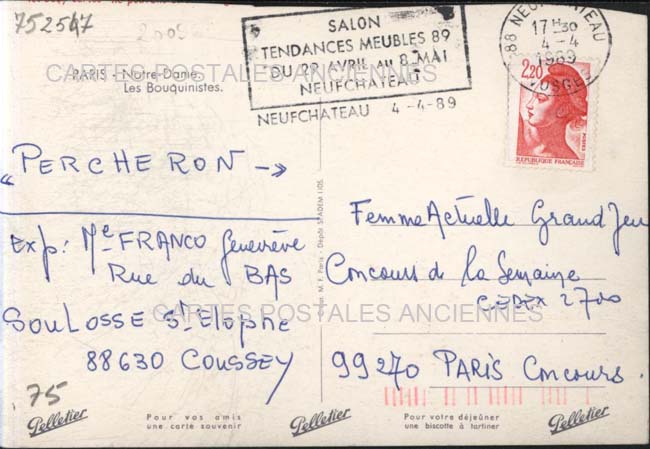 752547
2505
SALON
TENDANCES MEUBLES 89
DU 28 AVRIL AU 8 MAI
NEUFCHATEAU
NEUFCHATEAU 4-4-89
88 NEUFCHATEAU
17H30
4-4
1989
VOSGES
2,20
POSTES
REPUBLIQUE FRANÇAISE
CARTES POSTALES ANCIENNES
PARIS - Notre-Dame.
Les Bouquinistes.
"PERCHERON →
Exp: Me FRANCO Geneviève
Rue du BAS
SOULOSSE St Elophe
88630 COUSSEY
75
Imp. M. F. Paris - Dépôt SPADEM 1105
Femme Actuelle Grand Jeu
Concours de la Semaine
CEDEX 2700
99270 PARIS Concours.
CARTES POSTALES ANCIENNES
Pelletier
Pour vos amis
une carte souvenir
Pelletier
Pour votre déjeûner
une biscotte à tartiner
Pelletier